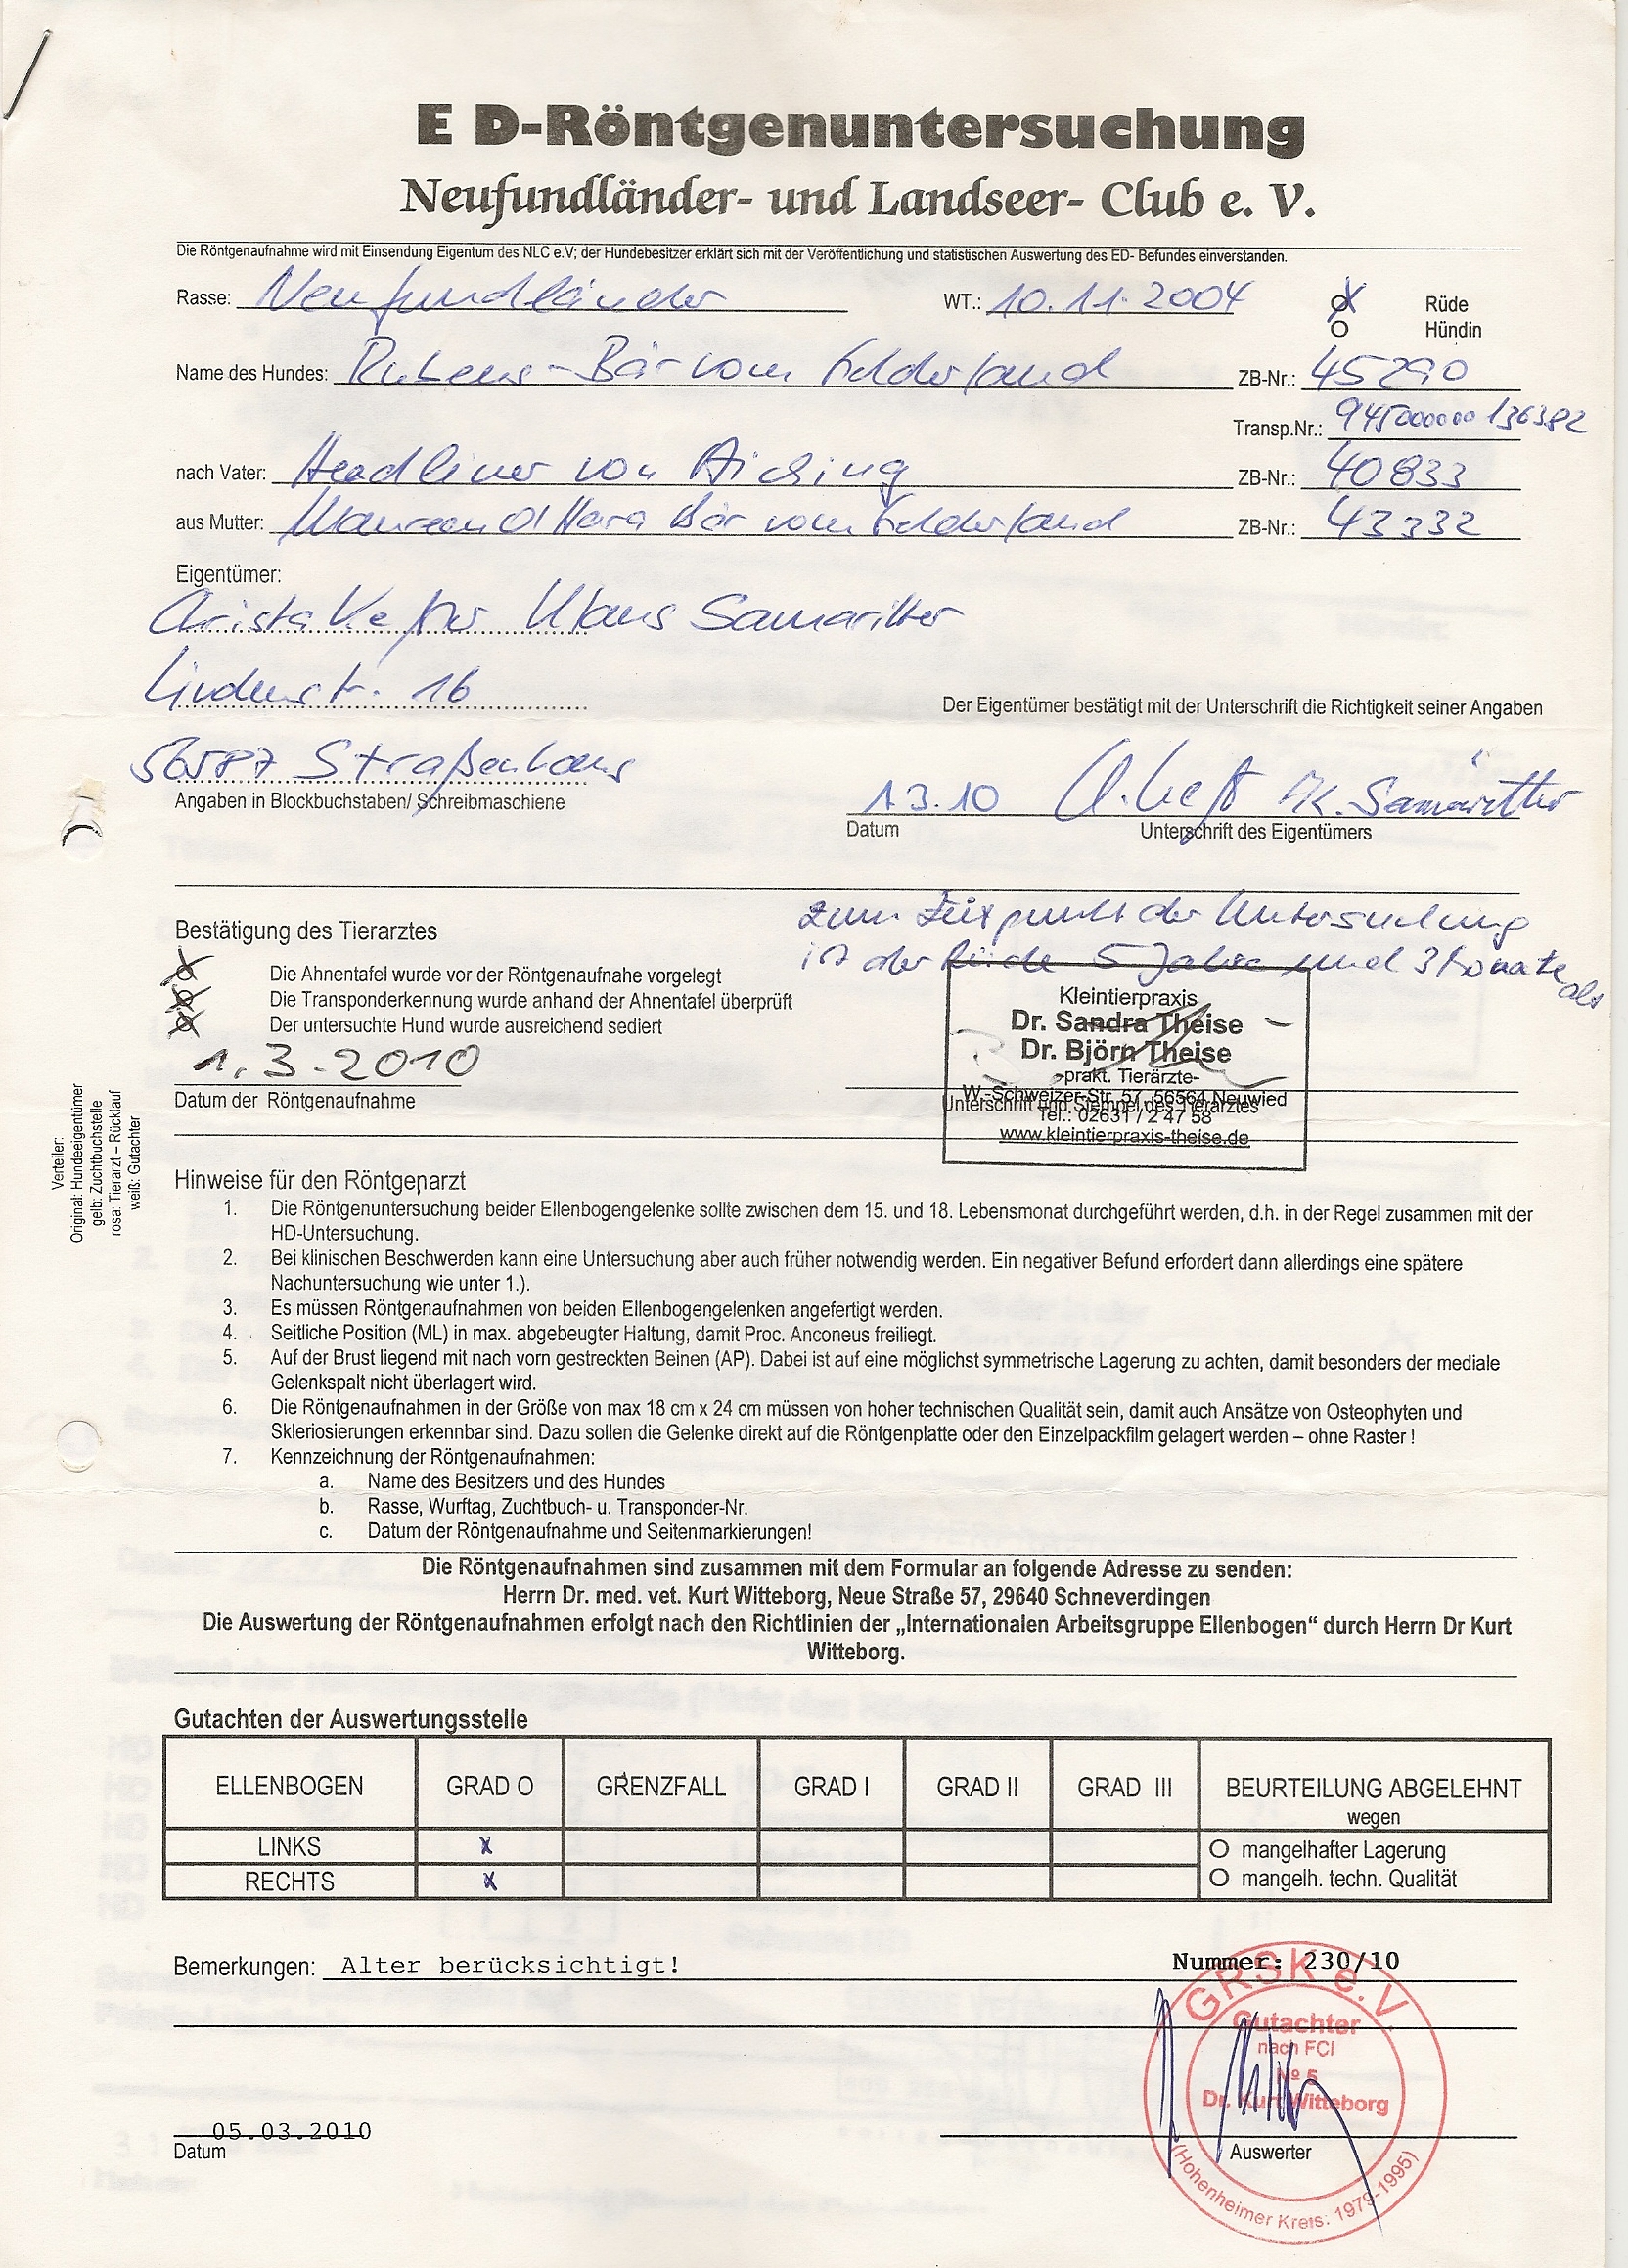 E D-Röntgenuntersuchung
Neufundländer- und Landseer- Club e. V.
Die Röntgenaufnahme wird mit Einsendung Eigentum des NLC e.V; der Hundebesitzer erklärt sich mit der Veröffentlichung und statistischen Auswertung des ED- Befundes einverstanden.
Rasse: Neufundländer WT.: 10.11.2004 Rüde
Hündin
Name des Hundes: Rubens-Bär vom Felderland ZB-Nr.: 45290
Transp.Nr.: 945000000 136382
nach Vater: Headliner von Aiching ZB-Nr.: 40833
aus Mutter: Maureen O'Hara Bär vom Felderland ZB-Nr.: 43332
Eigentümer:
Christa Klaus Samaritter
Lindenstr. 16
Der Eigentümer bestätigt mit der Unterschrift die Richtigkeit seiner Angaben
56587 Straßenhaus
Angaben in Blockbuchstaben/ Schreibmaschiene
1.3.10 K. Samaritter
Datum Unterschrift des Eigentümers
zum Zeitpunkt der Untersuchung
ist der Rüde 5 Jahre und 3 Monate alt
Bestätigung des Tierarztes
Die Ahnentafel wurde vor der Röntgenaufnahe vorgelegt
Die Transponderkennung wurde anhand der Ahnentafel überprüft
Der untersuchte Hund wurde ausreichend sediert
1.3.2010
Datum der Röntgenaufnahme
Kleintierpraxis
Dr. Sandra Theise
Dr. Björn Theise
-prakt. Tierärzte-
W.-Schweizer-Str. 57, 56564 Neuwied
Unterschrift und Stempel des Tierarztes
Tel.: 02631 / 2 47 58
www.kleintierpraxis-theise.de
Verteiler:
Original: Hundeeigentümer
gelb: Zuchtbuchstelle
rosa: Tierarzt – Rücklauf
weiß: Gutachter
Hinweise für den Röntgenarzt
1. Die Röntgenuntersuchung beider Ellenbogengelenke sollte zwischen dem 15. und 18. Lebensmonat durchgeführt werden, d.h. in der Regel zusammen mit der
HD-Untersuchung.
2. Bei klinischen Beschwerden kann eine Untersuchung aber auch früher notwendig werden. Ein negativer Befund erfordert dann allerdings eine spätere
Nachuntersuchung wie unter 1.).
3. Es müssen Röntgenaufnahmen von beiden Ellenbogengelenken angefertigt werden.
4. Seitliche Position (ML) in max. abgebeugter Haltung, damit Proc. Anconeus freiliegt.
5. Auf der Brust liegend mit nach vorn gestreckten Beinen (AP). Dabei ist auf eine möglichst symmetrische Lagerung zu achten, damit besonders der mediale
Gelenkspalt nicht überlagert wird.
6. Die Röntgenaufnahmen in der Größe von max 18 cm x 24 cm müssen von hoher technischen Qualität sein, damit auch Ansätze von Osteophyten und
Skleriosierungen erkennbar sind. Dazu sollen die Gelenke direkt auf die Röntgenplatte oder den Einzelpackfilm gelagert werden – ohne Raster !
7. Kennzeichnung der Röntgenaufnahmen:
a. Name des Besitzers und des Hundes
b. Rasse, Wurftag, Zuchtbuch- u. Transponder-Nr.
c. Datum der Röntgenaufnahme und Seitenmarkierungen!
Die Röntgenaufnahmen sind zusammen mit dem Formular an folgende Adresse zu senden:
Herrn Dr. med. vet. Kurt Witteborg, Neue Straße 57, 29640 Schneverdingen
Die Auswertung der Röntgenaufnahmen erfolgt nach den Richtlinien der „Internationalen Arbeitsgruppe Ellenbogen“ durch Herrn Dr Kurt
Witteborg.
Gutachten der Auswertungsstelle
ELLENBOGEN GRAD O GRENZFALL GRAD I GRAD II GRAD III BEURTEILUNG ABGELEHNT
wegen
LINKS x O mangelhafter Lagerung
RECHTS x O mangelh. techn. Qualität
Bemerkungen: Alter berücksichtigt! Nummer: 230/10
GRSK e.V.
Gutachter
nach FCI
Nº 5
Dr. Kurt Witteborg
(Hohenheimer Kreis: 1979-1995)
05.03.2010
Datum Auswerter